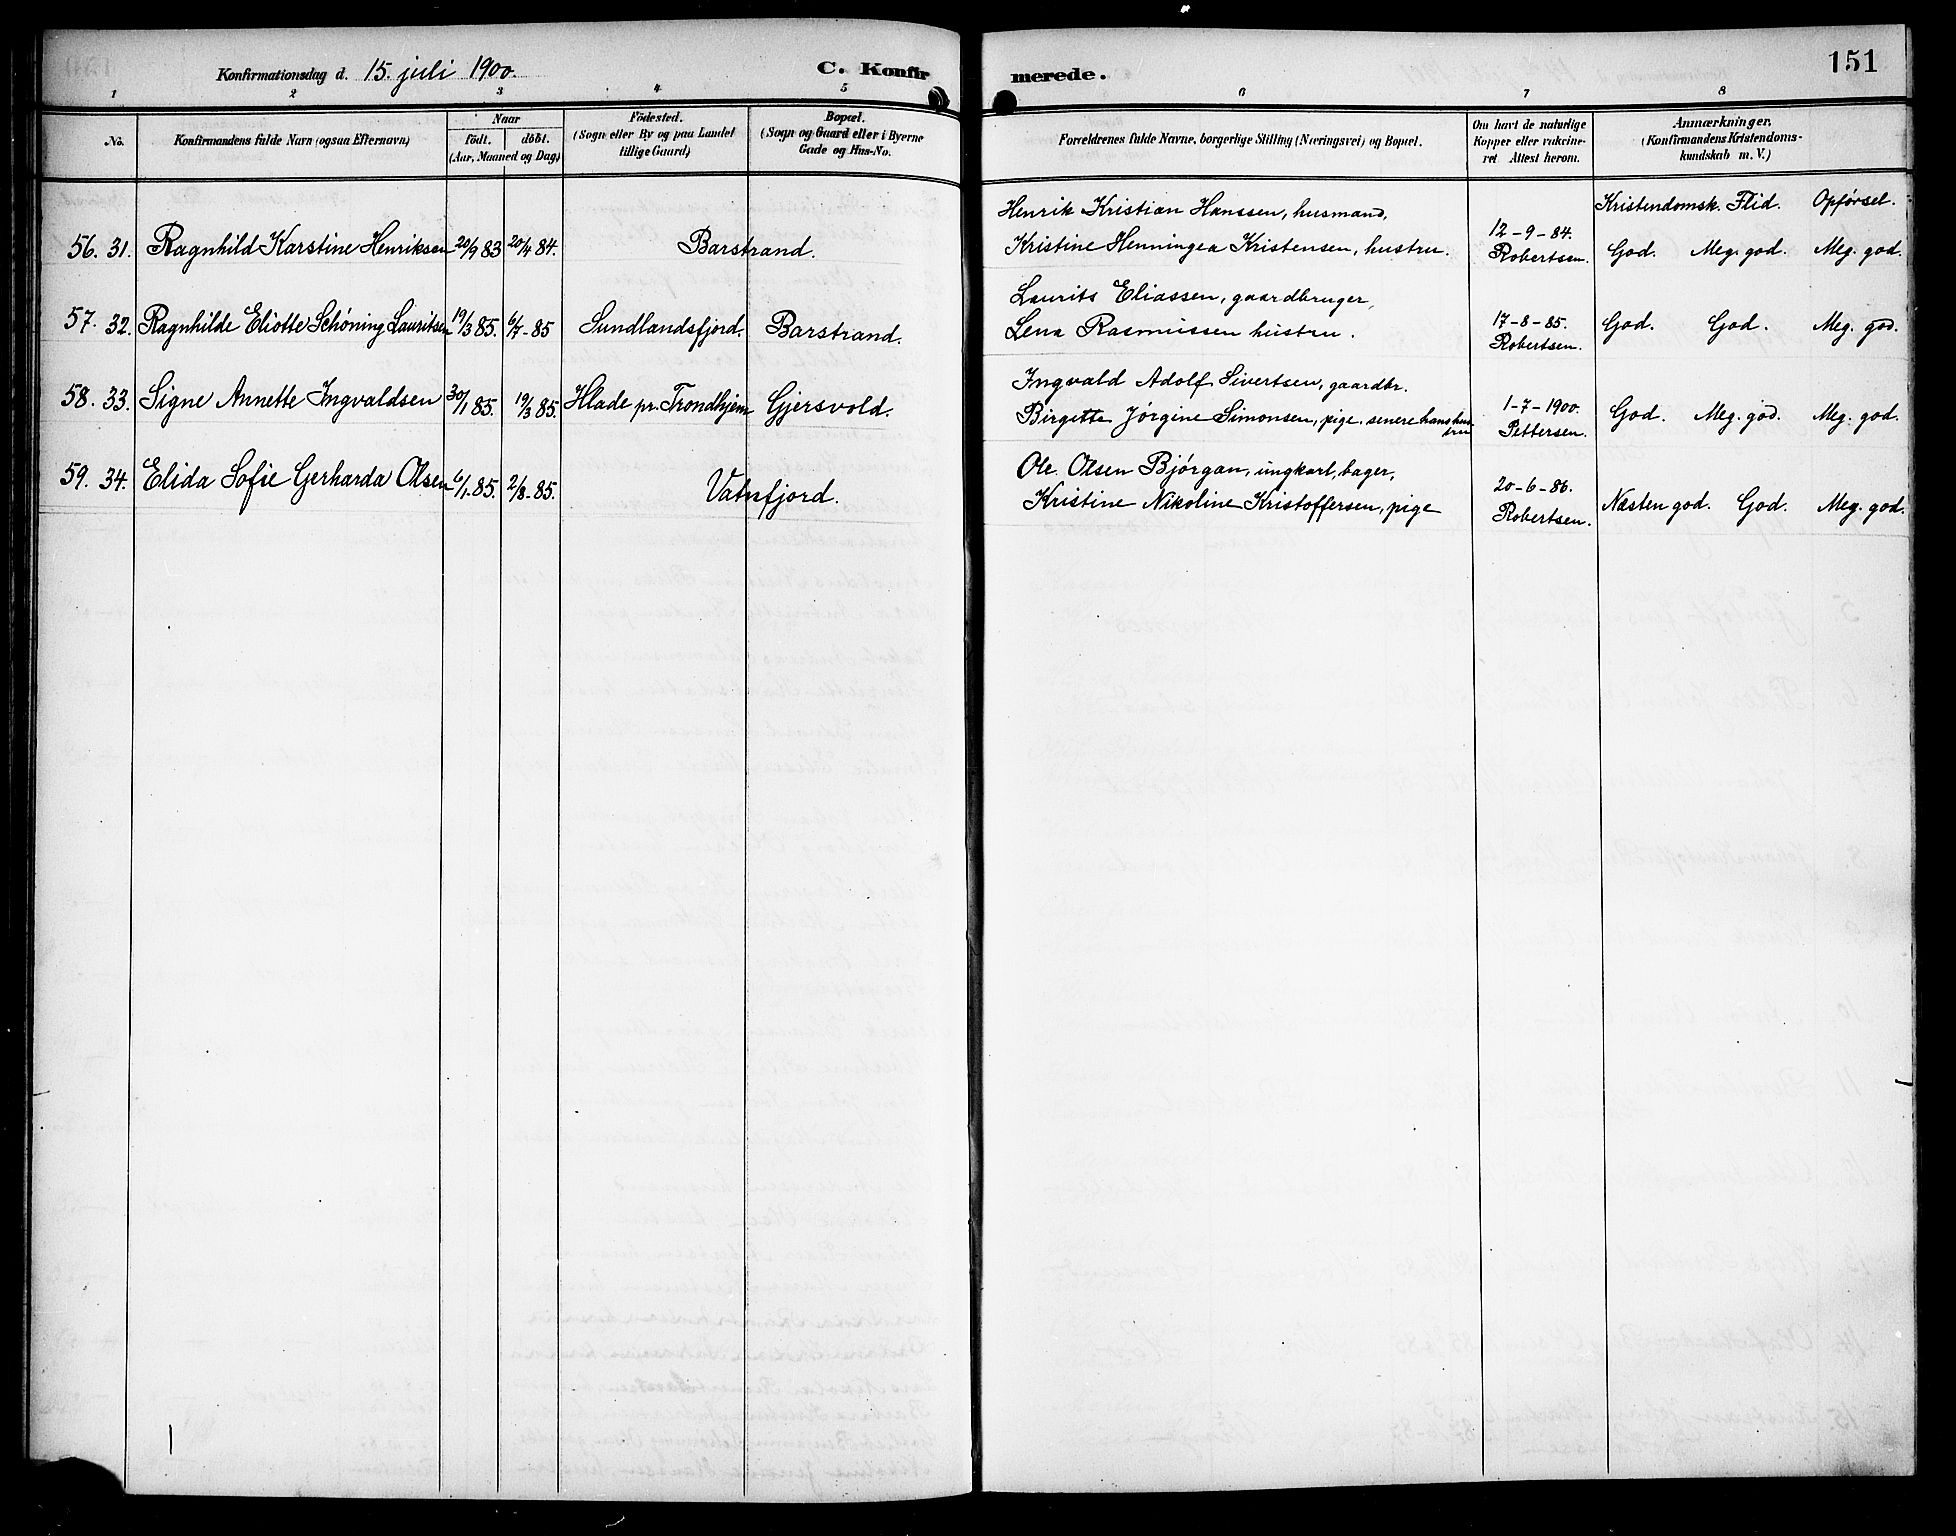 Konfirmationsdag d. 15. juli 1900.
C. Konfirmerede.
151
1 2 3 4 5 6 7 8
No.
Konfirmandens fulde Navn (ogsaa Efternavn)
Naar
födt. döbt.
(Aar, Maaned og Dag)
Födested.
(Sogn eller By og paa Landet
tillige Gaard)
Bopæl.
(Sogn og Gaard eller i Byerne
Gade og Hus-No.
Forældrenes fulde Navne, borgerlige Stilling (Næringsvei) og Bopæl.
Om havt de naturlige
Kopper eller vakcine-
ret Attest herom.
Anmærkninger.
(Konfirmandens Kristendoms-
kundskab m. V.)
Kristendomsk. Flid. Opførsel.
Henrik Kristian Hanssen, husmand,
56. 31. Ragnhild Karstine Henriksen 20/9 83 20/4 84. Barstrand. Kristine Henningea Kristensen, hustru. 12-9-84. Robertsen. God. Meg. god. Meg. god.
Laurits Eliassen, gaardbruger,
57. 32. Ragnhilde Eliotte Schøning Lauritsen 19/3 85. 6/7-85 Sundlandsfjord. Barstrand. Lena Rasmussen hustru. 17-8-85. Robertsen. God. God. Meg. god.
Ingvald Adolf Sivertsen, gaardbr.
58. 33. Signe Annette Ingvaldsen 30/1 85. 19/3 85. Hlade pr. Trondhjem Gjersvold. Birgitte Jørgine Simonsen, pige, senere hans hustru 1-7-1900. Pettersen. God. Meg. god. Meg. god.
Ole Olsen Bjørgan, ungkarl, bager,
59. 34. Elida Sofie Gerharda Olsen 6/1.85. 2/8-85. Vatnfjord. Kristine Nikoline Kristoffersen, pige 20-6-86. Robertsen. Næsten god. God. Meg. god.